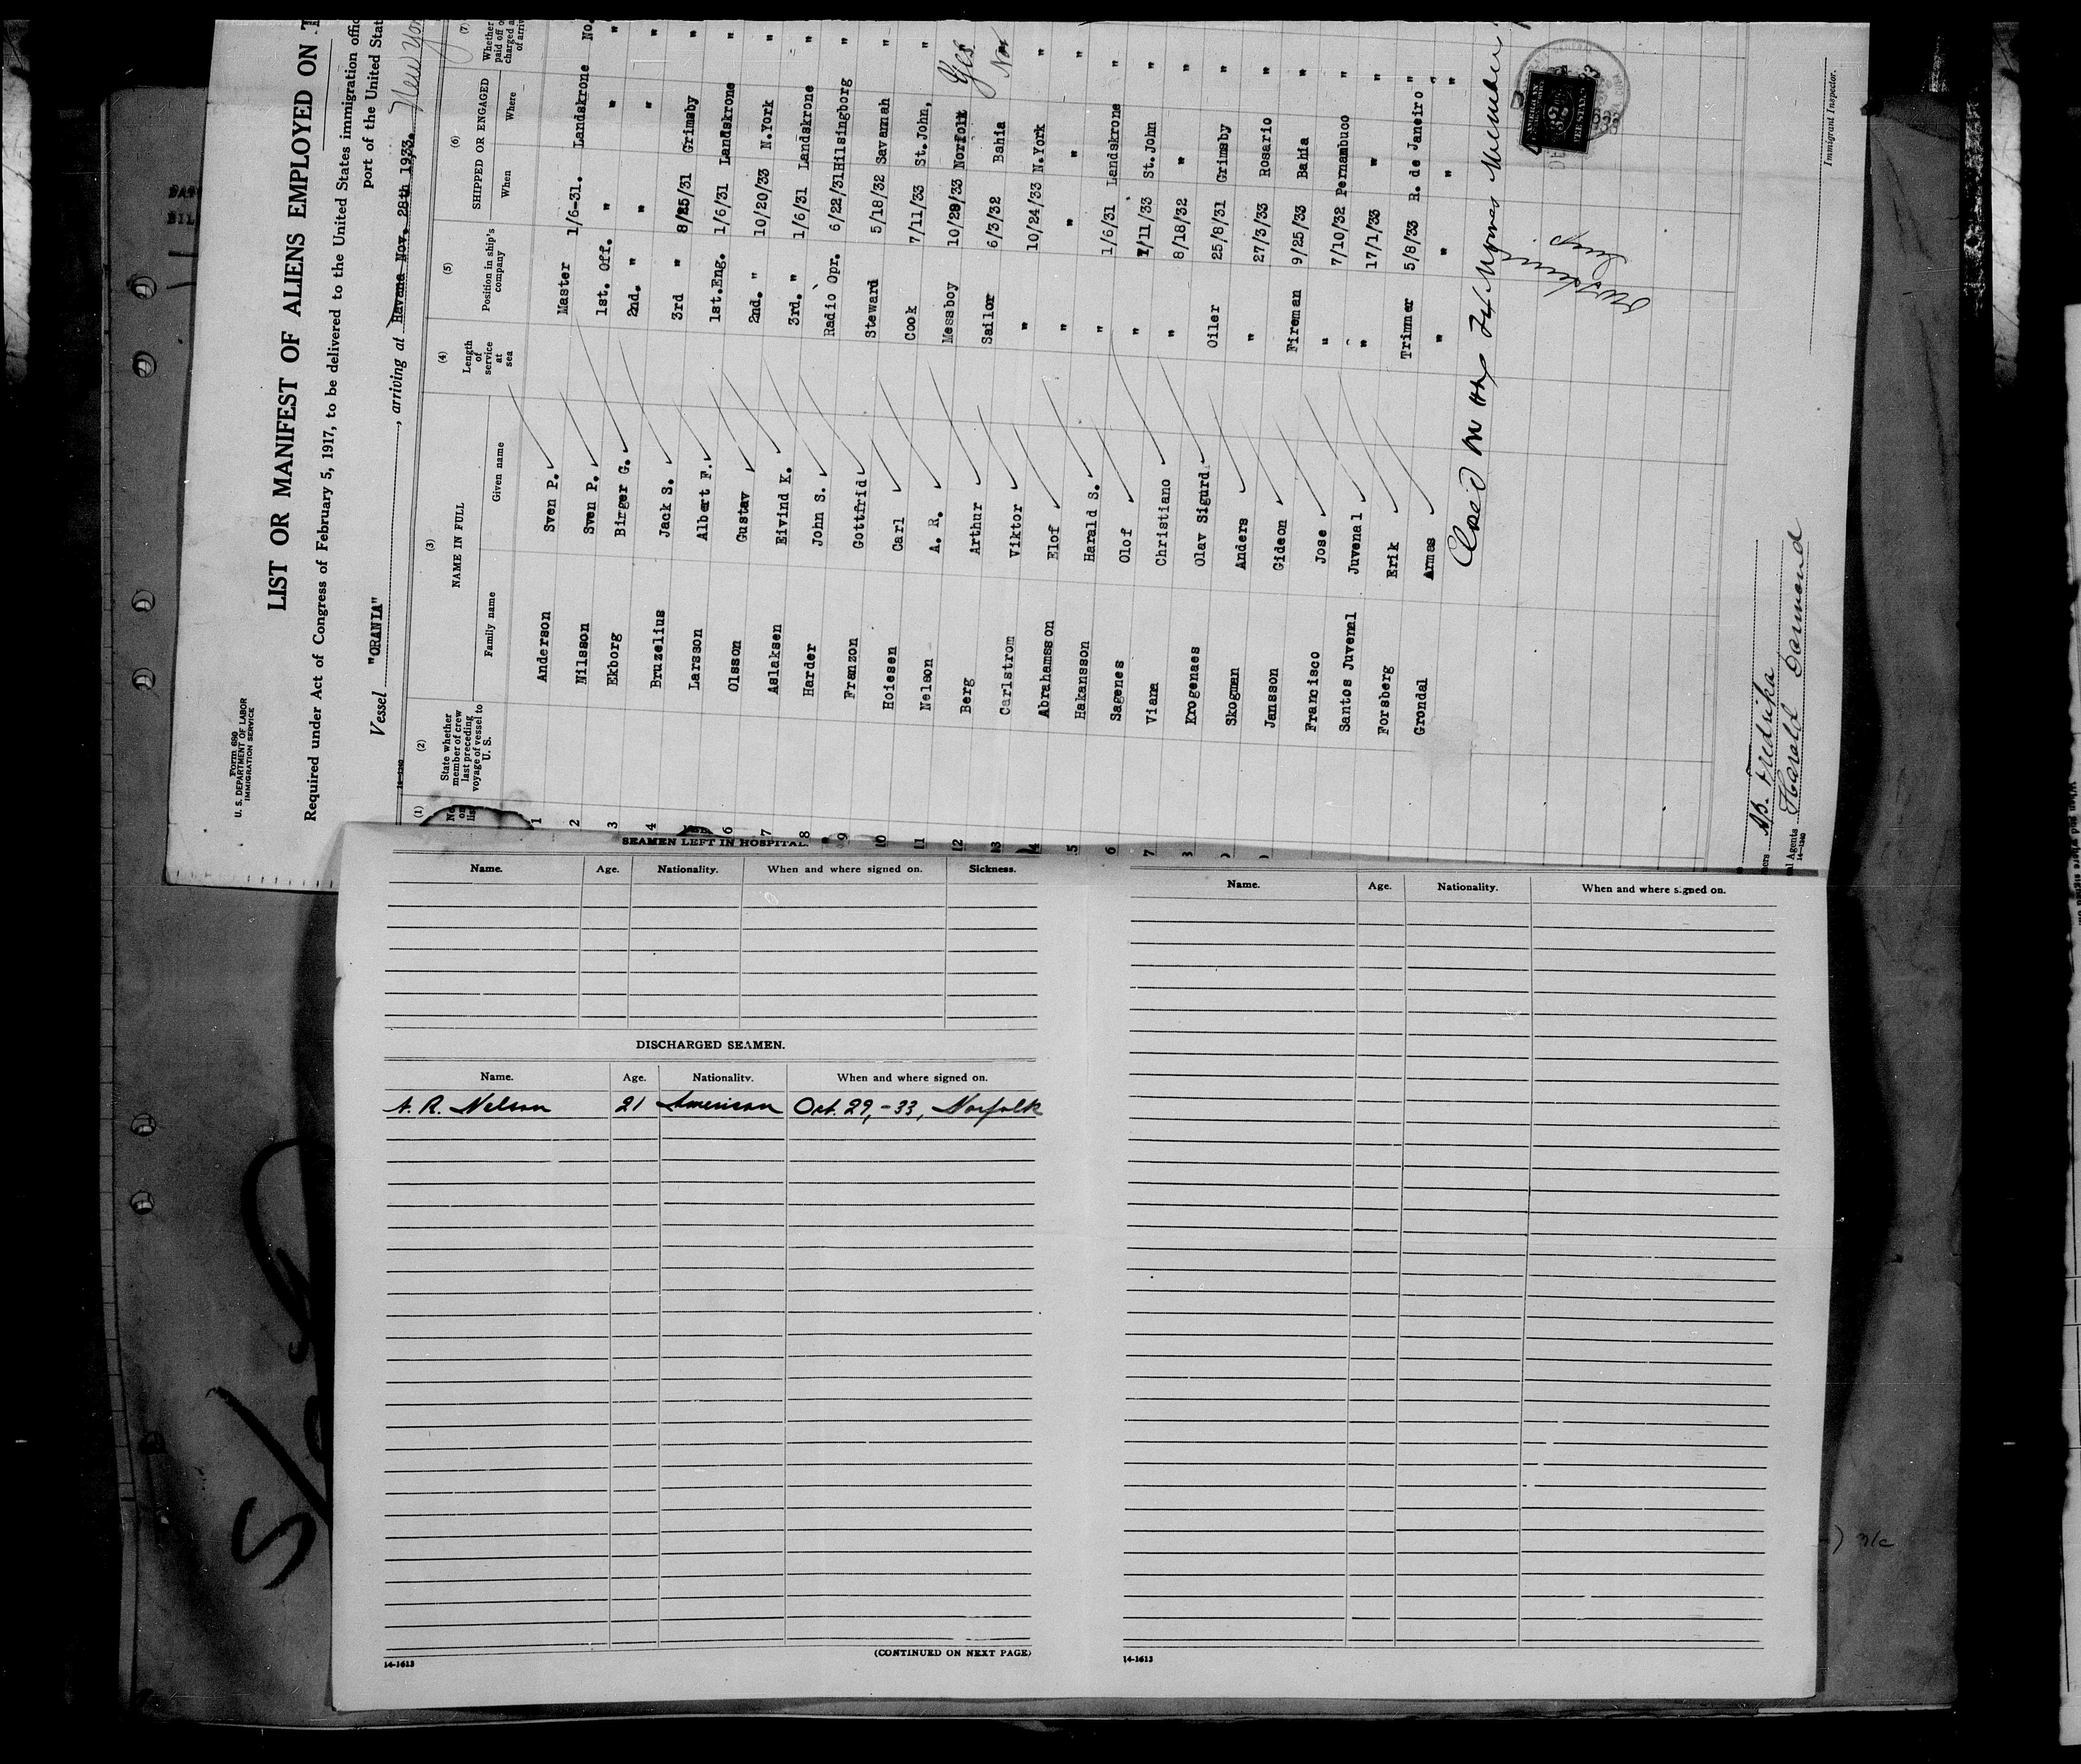 Form 680
U. S. DEPARTMENT OF LABOR
IMMIGRATION SERVICE
LIST OR MANIFEST OF ALIENS EMPLOYED ON
Required under Act of Congress of February 5, 1917, to be delivered to the United States immigration
port of the United
Vessel "ORANIA", arriving at Havana Nov. 28th 1933. New
(1) (2) (3) (4) (5) (6) (7)
No. on
State whether member of crew last preceding voyage of vessel to U. S.
NAME IN FULL
Family name Given name
Length of service at sea
Position in ship's company
SHIPPED OR ENGAGED
When Where
Whether paid off or
1 Anderson Sven P. Master 1/6-31. Landskrone No.
2 Nilsson Sven P. 1st. Off. " " "
3 Ekborg Birger G. 2nd. " " " "
4 Bruzelius Jack S. 3rd " 8/25/31 Grimsby "
Larsson Albert F. 1st.Eng. 1/6/31 Landskrone "
6 Olsson Gustav 2nd. " 10/20/33 N.York "
7 Aslaksen Eivind K. 3rd. " 1/6/31 Landskrone "
8 Harder John S. Radio Opr. 6/22/31 Hilsingborg "
9 Franzon Gottfrid Steward 5/18/32 Savannah "
10 Hoiesen Carl Cook 7/11/33 St.John, "
11 Nelson A. R. Messboy 10/29/33 Norfolk Yes
12 Berg Arthur Sailor 6/3/32 Bahia No
13 Carlstrom Viktor " 10/24/33 N.York "
14 Abrahamsson Elof " " " "
15 Hakansson Harald S. " 1/6/31 Landskrone "
6 Sagenes Olof " 7/11/33 St.John "
7 Viana Christiano " 8/18/32 " "
8 Krogenaes Olav Sigurd Oiler 25/8/31 Grimsby "
Skogman Anders " 27/3/33 Rosario "
Jansson Gideon Fireman 9/25/33 Bahia "
Francisco Jose " 7/10/32 Pernambuco "
Santos Juvenal Juvenal " 17/1/33 " "
Forsberg Erik Trimmer 5/8/33 R. de Janeiro "
Grondal Armas " " " "
Immigrant Inspector.
Fredrika
Agents Harald
14-1240
SEAMEN LEFT IN HOSPITAL.
Name. Age. Nationality. When and where signed on. Sickness.
DISCHARGED SEAMEN.
Name. Age. Nationality. When and where signed on.
A. R. Nelson 21 American Oct. 29,-33, Norfolk
(CONTINUED ON NEXT PAGE)
14-1613
Name. Age. Nationality. When and where signed on.
14-1613